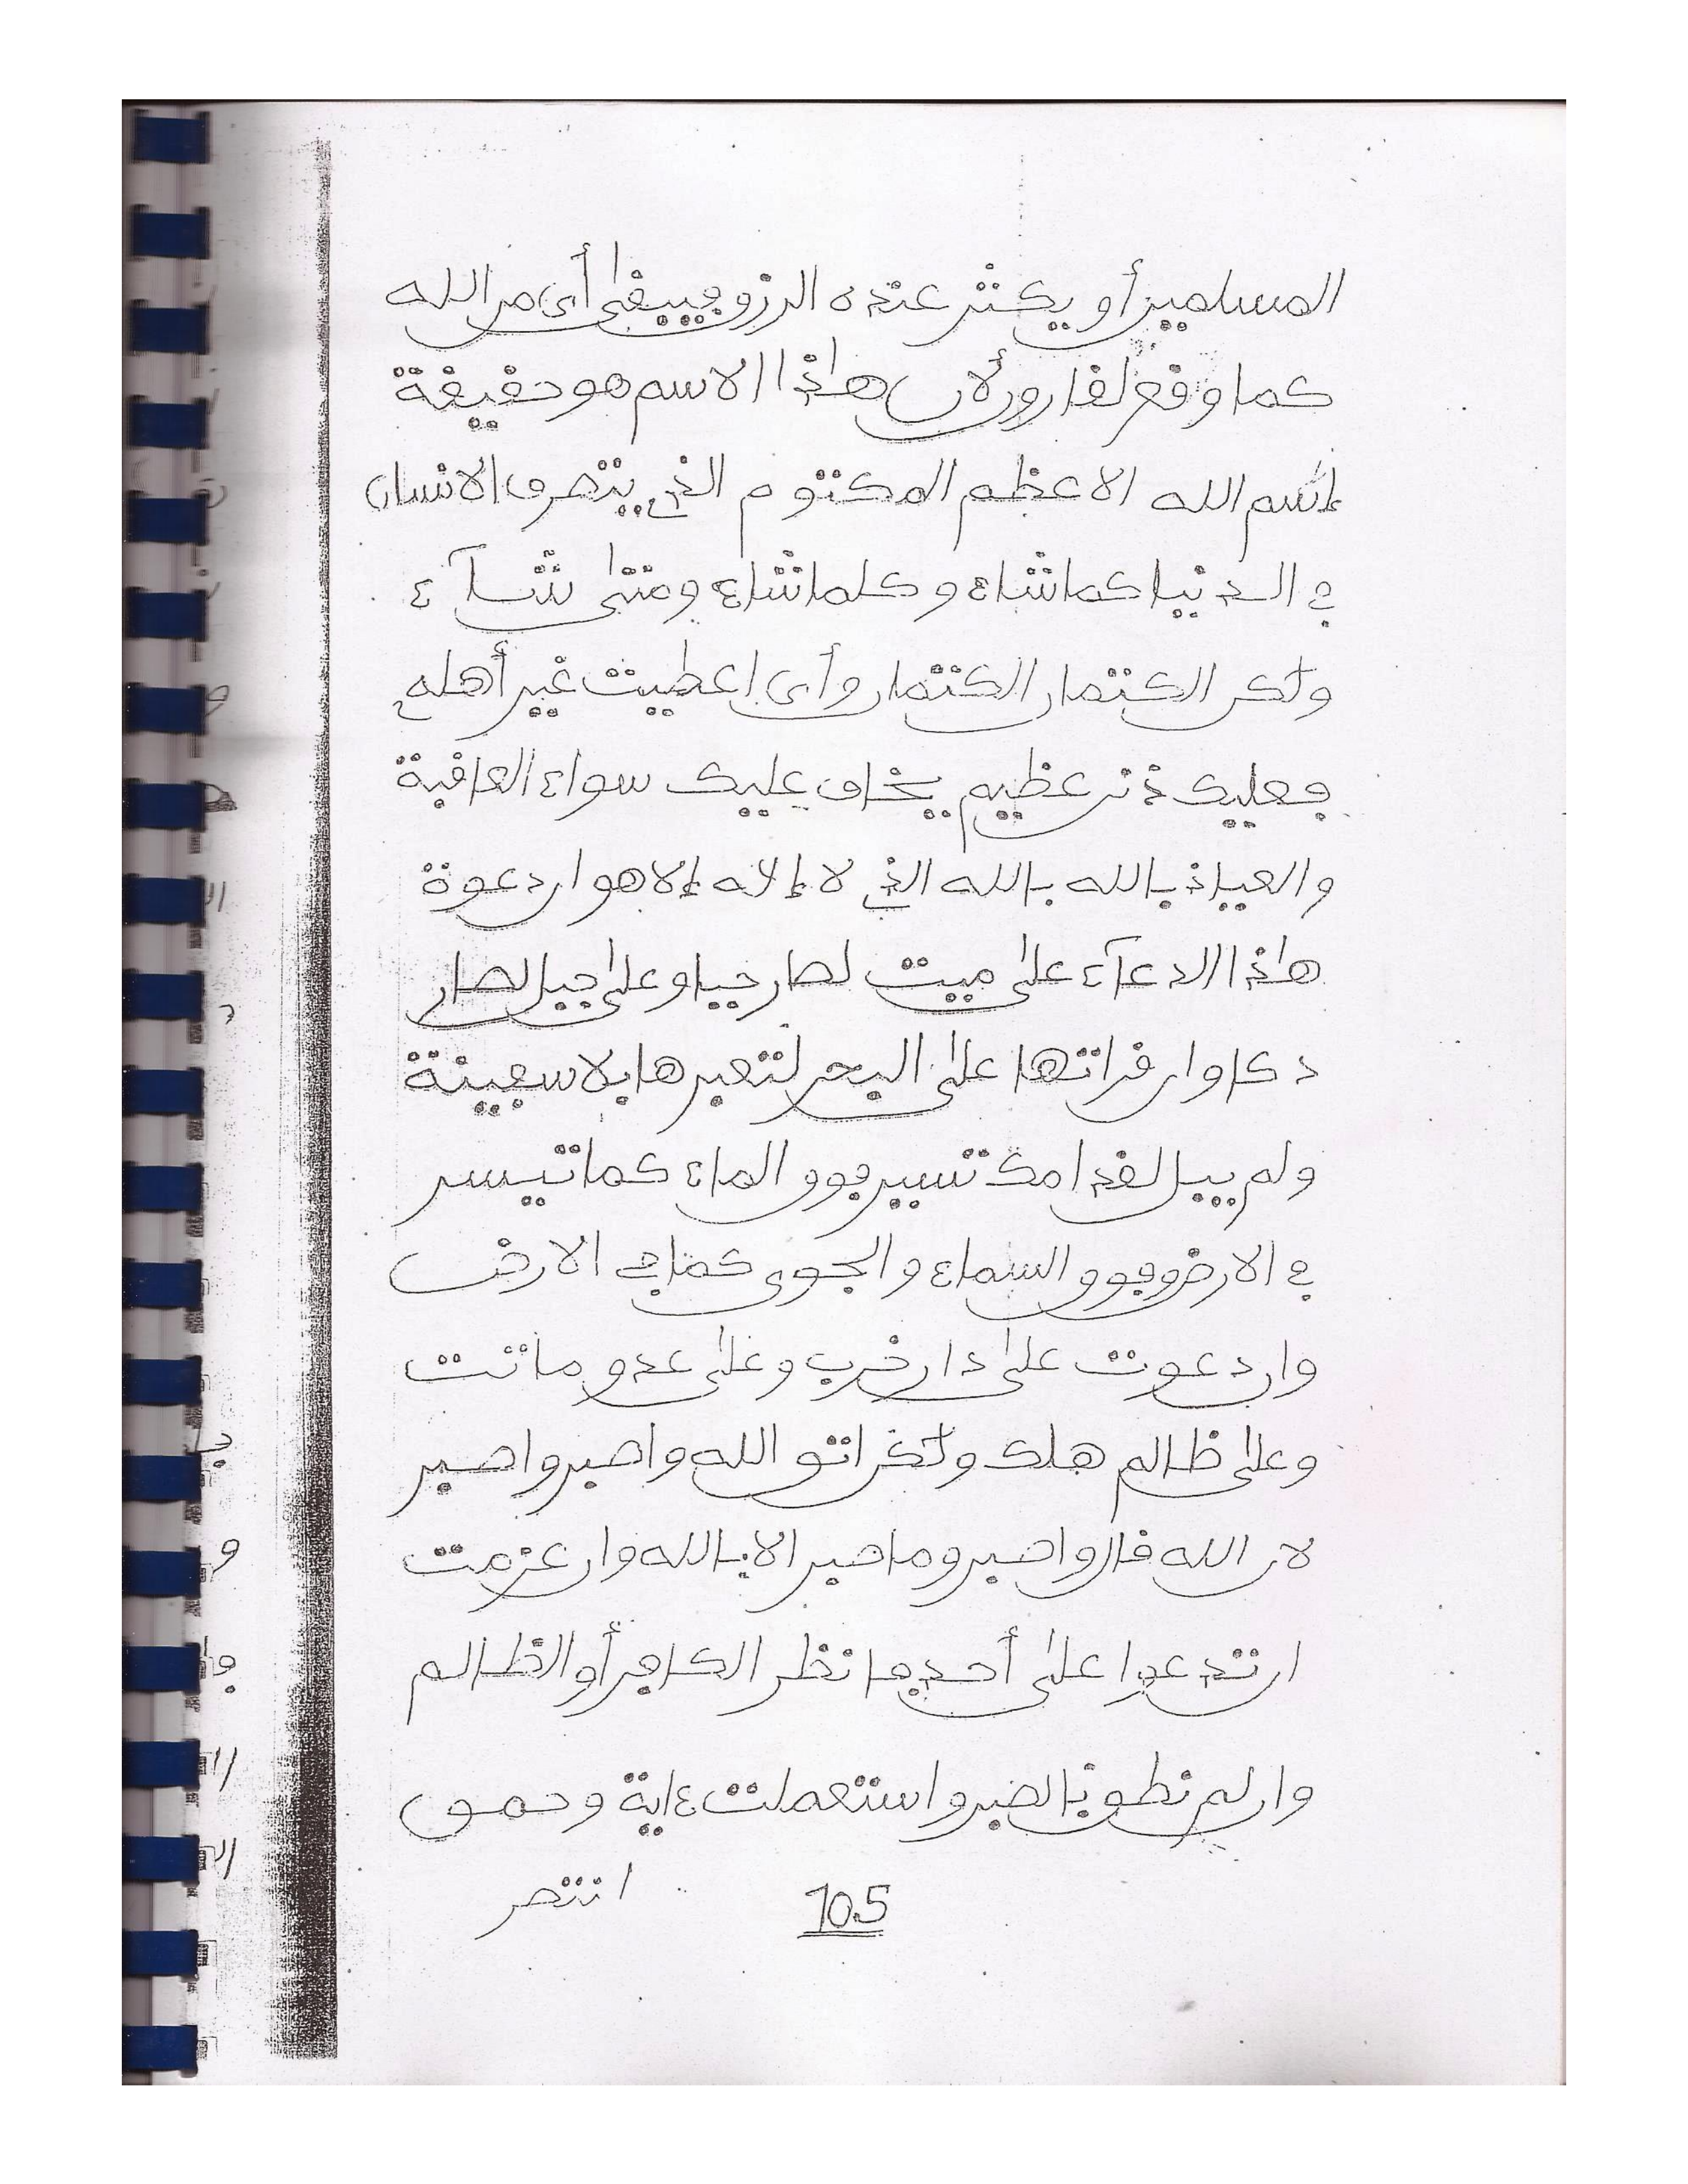 المسلمين أو يكثر عنده الرزق فيبغى أى من الله
كما وقع لقارون لأن هذا الاسم هو حقيقة
إسم الله الاعظم المكتوم الذي يتصرف الانسان
في الدنيا كما شاء وكلما شاء ومتى شآء
ولكن الكتمان الكتمان وأى اعطيت غير أهله
فعليك ذنب عظيم يخاف عليك سواء العاقبة
والعياذ بالله بالله الذي لا إلاه إلا هو ان دعوة
هاذا الدعآء على ميت لصار حيا وعلى جبل لصار
دكا وان قراتها على البحر لتعبرها بلا سفينة
ولم يبل لقدامك تسير فوق الماء كما تيسر
في الارض وفوق السماء والجوى كما في الارض
وان دعوت على دار خرب وعلى عدو ماتت
وعلى ظالم هلك ولكن اتق الله واصبر واصبر
لان الله قال واصبر وما صبر الا بالله وان عزمت
ان تدعوا على أحد فانظر الكافر أو الظالم
وان لم تطق بالصبر واستعملت ءاية وحمق
انتصر
105